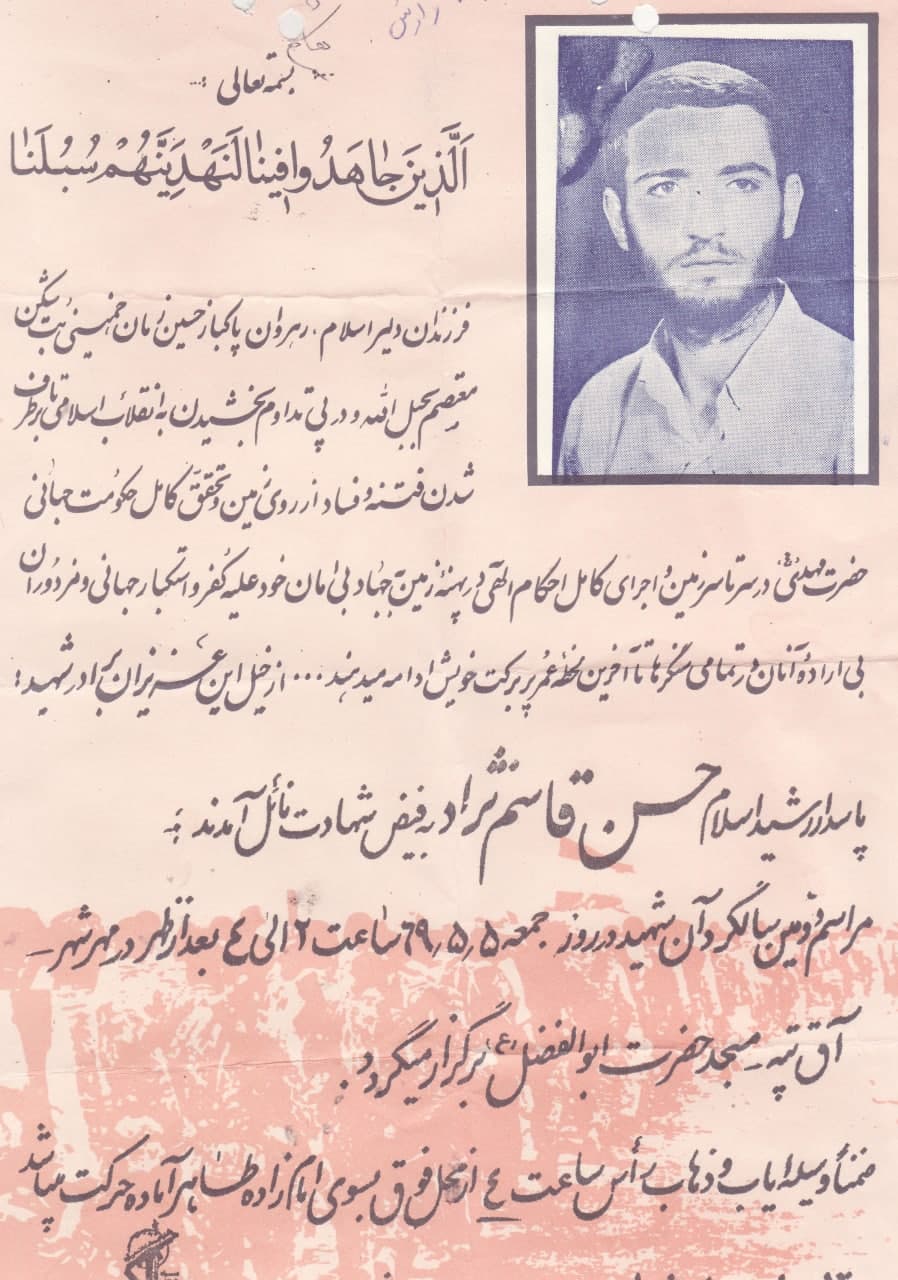 بسمه تعالی
اَلَّذینَ جاهَدُوا فینا لَنَهْدِیَنَّهُمْ سُبُلَنا
فرزندان دلیر اسلام، رهروان پاکباز حسین زمان خمینی بت شکن
معتصم بحبل الله و در پی تداوم بخشیدن به انقلاب اسلامی تا برطرف
شدن فتنه و فساد از روی زمین و تحقق کامل حکومت جهانی
حضرت مهدی در سرتاسر زمین و اجرای کامل احکام الهی در پهنه زمین به جهاد بی امان خود علیه کفر و استکبار جهانی و مزدوران
بی اراده آنان در تمامی سنگرها تا آخرین لحظه عمر پر برکت خویش ادامه میدهند ... از خیل این عزیزان برادر شهید:
پاسدار رشید اسلام حسن قاسم نژاد به فیض شهادت نائل آمدند
مراسم دومین سالگرد آن شهید در روز جمعه ۶۹،۵،۵ ساعت ۲ الی ٤ بعد از ظهر در مهرشهر -
آق تپه - مسجد حضرت ابوالفضل (ع) برگزار میگردد.
ضمناً وسیله ایاب و ذهاب رأس ساعت ٤ از محل فوق بسوی امام زاده طاهر آماده حرکت میباشد